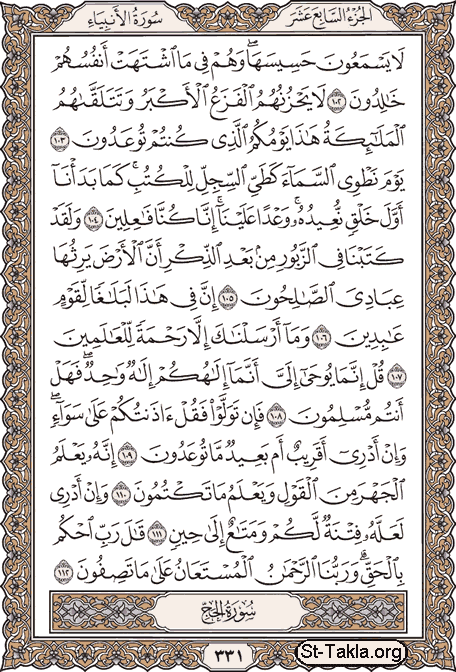 الجزء السابع عشر
سورة الأنبياء
لَا يَسْمَعُونَ حَسِيسَهَا ۖ وَهُمْ فِي مَا ٱشْتَهَتْ أَنفُسُهُمْ
خَٰلِدُونَ ١٠٢ لَا يَحْزُنُهُمُ ٱلْفَزَعُ ٱلْأَكْبَرُ وَتَتَلَقَّىٰهُمُ
ٱلْمَلَٰٓئِكَةُ هَٰذَا يَوْمُكُمُ ٱلَّذِي كُنتُمْ تُوعَدُونَ ١٠٣
يَوْمَ نَطْوِي ٱلسَّمَآءَ كَطَيِّ ٱلسِّجِلِّ لِلْكُتُبِ ۚ كَمَا بَدَأْنَآ
أَوَّلَ خَلْقٍ نُّعِيدُهُۥ ۚ وَعْدًا عَلَيْنَآ ۚ إِنَّا كُنَّا فَٰعِلِينَ ١٠٤ وَلَقَدْ
كَتَبْنَا فِي ٱلزَّبُورِ مِنۢ بَعْدِ ٱلذِّكْرِ أَنَّ ٱلْأَرْضَ يَرِثُهَا
عِبَادِيَ ٱلصَّٰلِحُونَ ١٠٥ إِنَّ فِي هَٰذَا لَبَلَٰغًا لِّقَوْمٍ
عَٰبِدِينَ ١٠٦ وَمَآ أَرْسَلْنَٰكَ إِلَّا رَحْمَةً لِّلْعَٰلَمِينَ
١٠٧ قُلْ إِنَّمَا يُوحَىٰٓ إِلَيَّ أَنَّمَآ إِلَٰهُكُمْ إِلَٰهٌ وَٰحِدٌ ۖ فَهَلْ
أَنتُم مُّسْلِمُونَ ١٠٨ فَإِن تَوَلَّوْا۟ فَقُلْ ءَاذَنتُكُمْ عَلَىٰ سَوَآءٍ ۖ
وَإِنْ أَدْرِيٓ أَقَرِيبٌ أَم بَعِيدٌ مَّا تُوعَدُونَ ١٠٩ إِنَّهُۥ يَعْلَمُ
ٱلْجَهْرَ مِنَ ٱلْقَوْلِ وَيَعْلَمُ مَا تَكْتُمُونَ ١١٠ وَإِنْ أَدْرِي
لَعَلَّهُۥ فِتْنَةٌ لَّكُمْ وَمَتَٰعٌ إِلَىٰ حِينٍ ١١١ قَٰلَ رَبِّ ٱحْكُم
بِٱلْحَقِّ ۗ وَرَبُّنَا ٱلرَّحْمَٰنُ ٱلْمُسْتَعَانُ عَلَىٰ مَا تَصِفُونَ ١١٢
سُورَةُ الحَجِّ
٣٣١
St-Takla.org